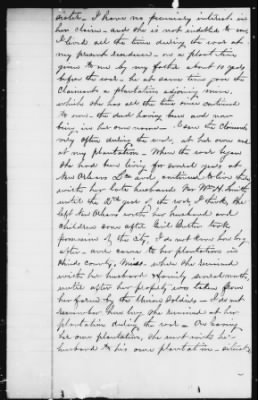 sister - I have no pecuniary interest in
her claim - and she is not indebted to me
I lived all the time during the war at
my present residence - on a plantation
given to me by my father about 10 years
before the war - he at same time gave the
Claimant a plantation adjoining mine,
which she has all the time since continued
to own - the deed having been and now
being in her own name - I saw the Claimant
very often during the war, at her own and
at my plantation - When the war began
she had been living for several years at
New Orleans La and continued to live there
with her late husband Mr Wm H. Smith
until the 2nd year of the war, I think She
left New Orleans with her husband and
children soon after Genl Butler took
possession of the City, I do not know how long
after - and came to her plantation in
Hinds County, Miss. where she remained
with her husband & family several months,
until after her property was taken from
her farm by the Union Soldiers - I do not
remember how long she remained at her
plantation during the war - On leaving
her own plantation, she went with her
husband to his own plantation -